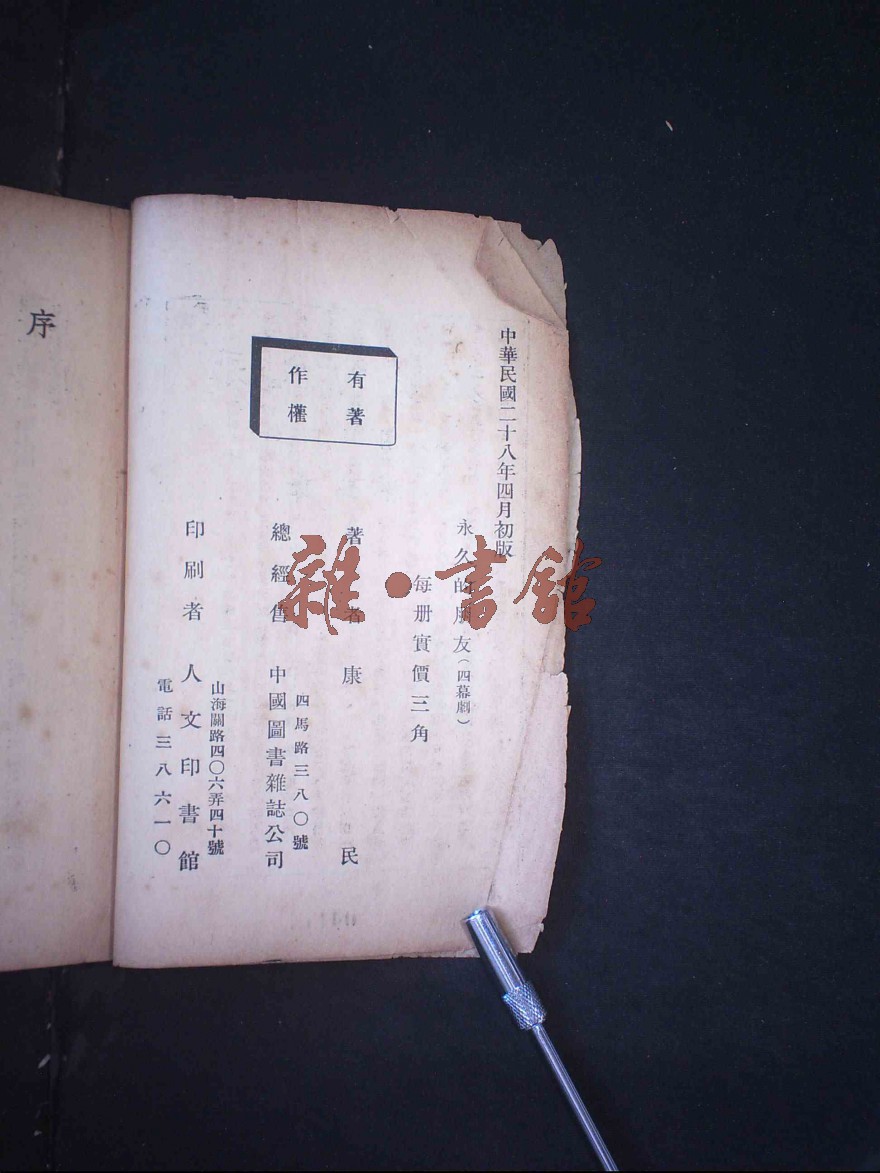 中華民國二十八年四月初版
永久的朋友(四幕劇)
每册實價三角
有著
作權
著者 康民
四馬路三八〇號
總經售 中國圖書雜誌公司
山海關路四〇六弄四十號
印刷者 人文印書館
電話三八六一〇
序
雜·書館